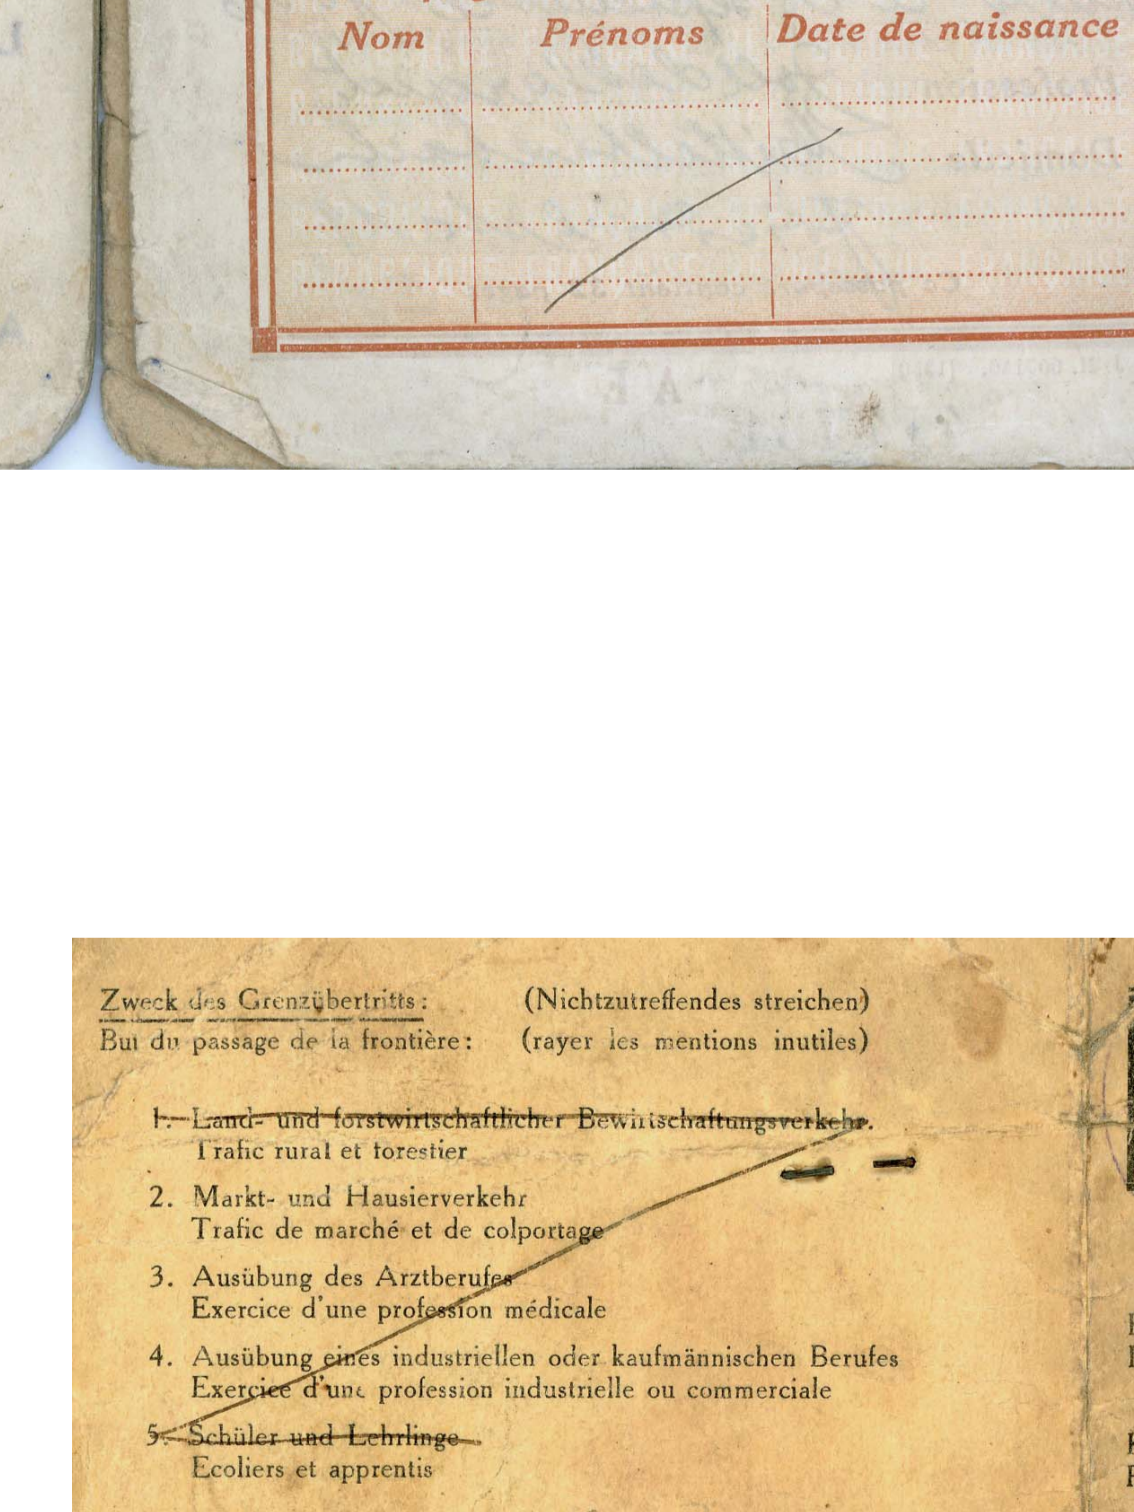 Nom Prénoms Date de naissance
Zweck des Grenzübertritts: (Nichtzutreffendes streichen)
But du passage de la frontière: (rayer les mentions inutiles)
1. Land- und forstwirtschaftlicher Bewirtschaftungsverkehr.
Trafic rural et forestier
2. Markt- und Hausierverkehr
Trafic de marché et de colportage
3. Ausübung des Arztberufes
Exercice d'une profession médicale
4. Ausübung eines industriellen oder kaufmännischen Berufes
Exercice d'une profession industrielle ou commerciale
5. Schüler und Lehrlinge
Ecoliers et apprentis